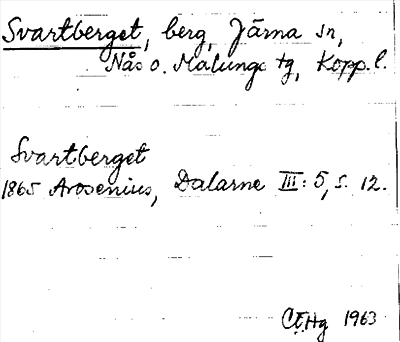 Svartberget, berg, Järna sn,
Nås o. Malungs tg, Kopp. l.
Svartberget
1865 Arosenius, Dalarne III: 5, s. 12.
CEHg 1963